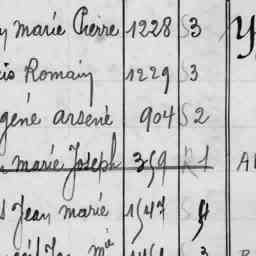 y Marie Pierre 1228 S3
is Romain 1229 S3
géné Arsené 904 S2
Marie Joseph 359 R1 A
Jean Marie 1547 S4